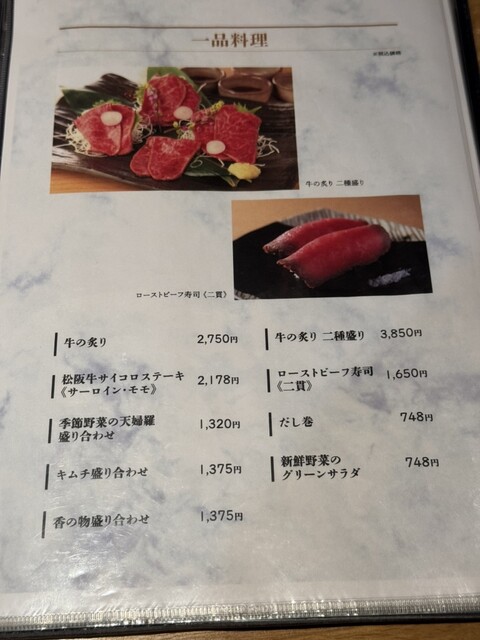 一品料理
※税込価格
牛の炙り 二種盛り
ローストビーフ寿司《二貫》
牛の炙り 2,750円
松阪牛サイコロステーキ
《サーロイン・モモ》 2,178円
季節野菜の天婦羅
盛り合わせ 1,320円
キムチ盛り合わせ 1,375円
香の物盛り合わせ 1,375円
牛の炙り 二種盛り 3,850円
ローストビーフ寿司
《二貫》 1,650円
だし巻 748円
新鮮野菜の
グリーンサラダ 748円